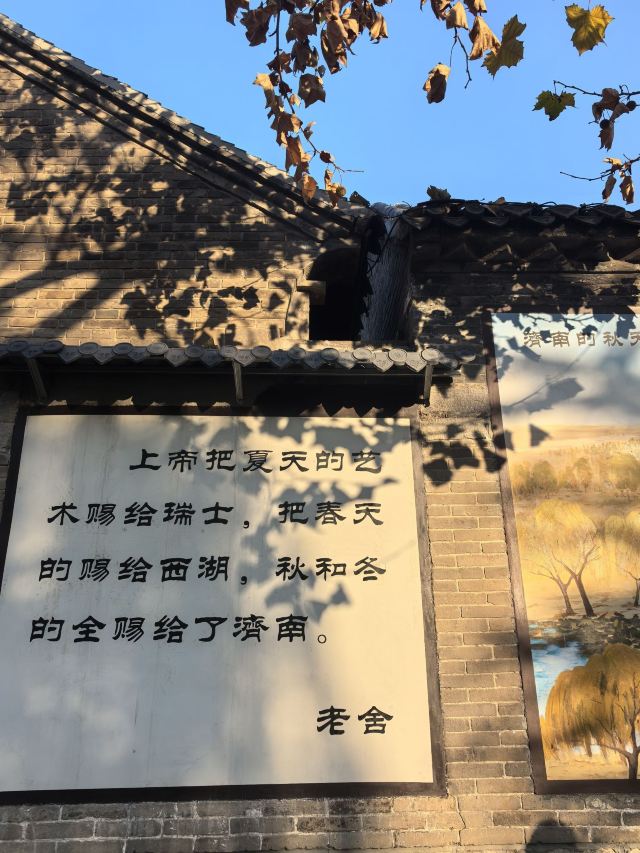 上帝把夏天的艺
术赐给瑞士，把春天
的赐给西湖，秋和冬
的全赐给了濟南。
老舍
濟南的秋天